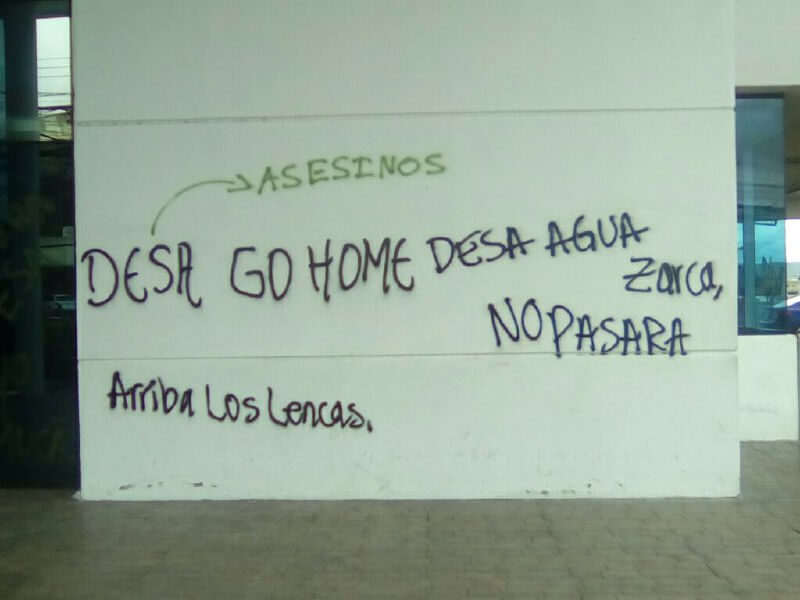 ASESINOS
DESA GO HOME DESA AGUA
Zarca,
NO PASARA
Arriba Los Lencas.